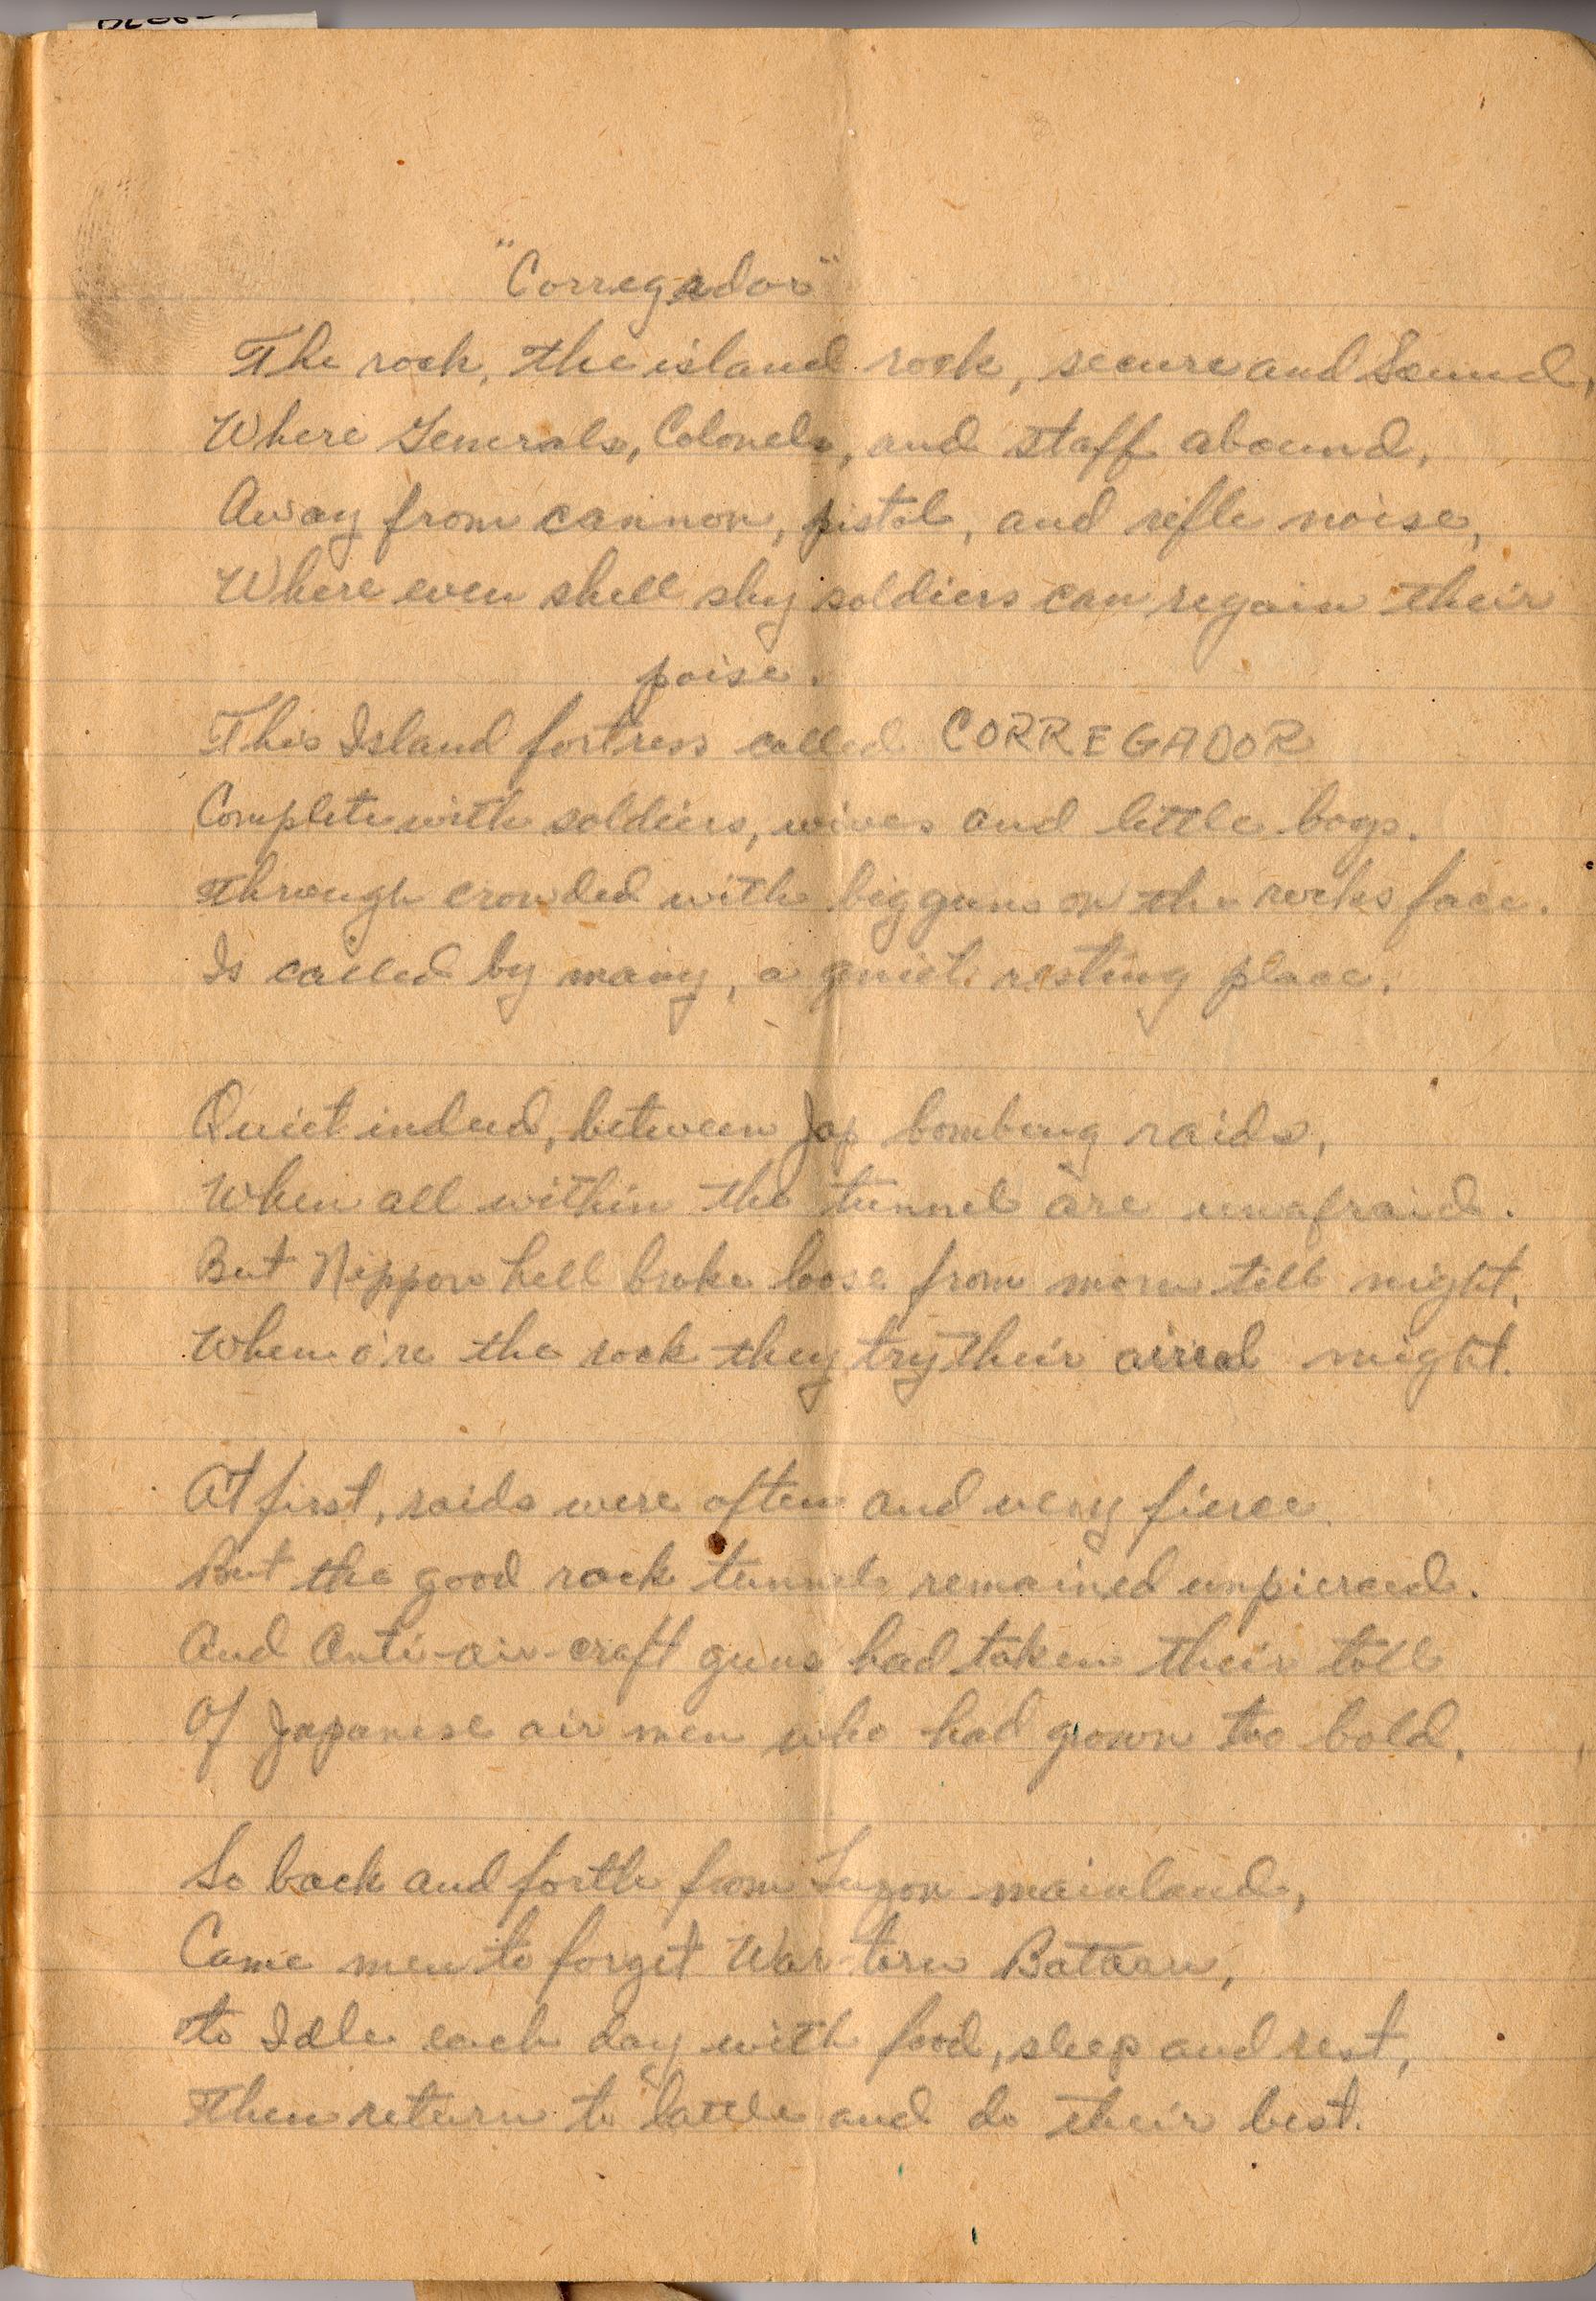 "Corregador"
The rock, the island rock, secure and Sound,
Where Generals, Colonels, and staff abound,
Away from cannon, pistol, and rifle noise,
Where even shell shy soldiers can regain their
poise.
This Island fortress called CORREGADOR
Complete with soldiers, wives and little boys.
Through crowded with big guns on the rocks face.
Is called by many, a quiet resting place.
Quiet indeed, between Jap bombing raids,
When all within the tunnel are unafraid.
But Nippon hell broke loose from morn till night,
When o're the rock they try their airial might.
At first, raids were often and very fierce.
But the good rock tunnels remained unpierced.
And Anti-air-craft guns had taken their toll
Of Japanese air men who had grown too bold.
So back and forth from Luzon mainland,
Came men to forget War torn Bataan,
to Idle each day with food, sleep and rest,
Then return to battle and do their best.